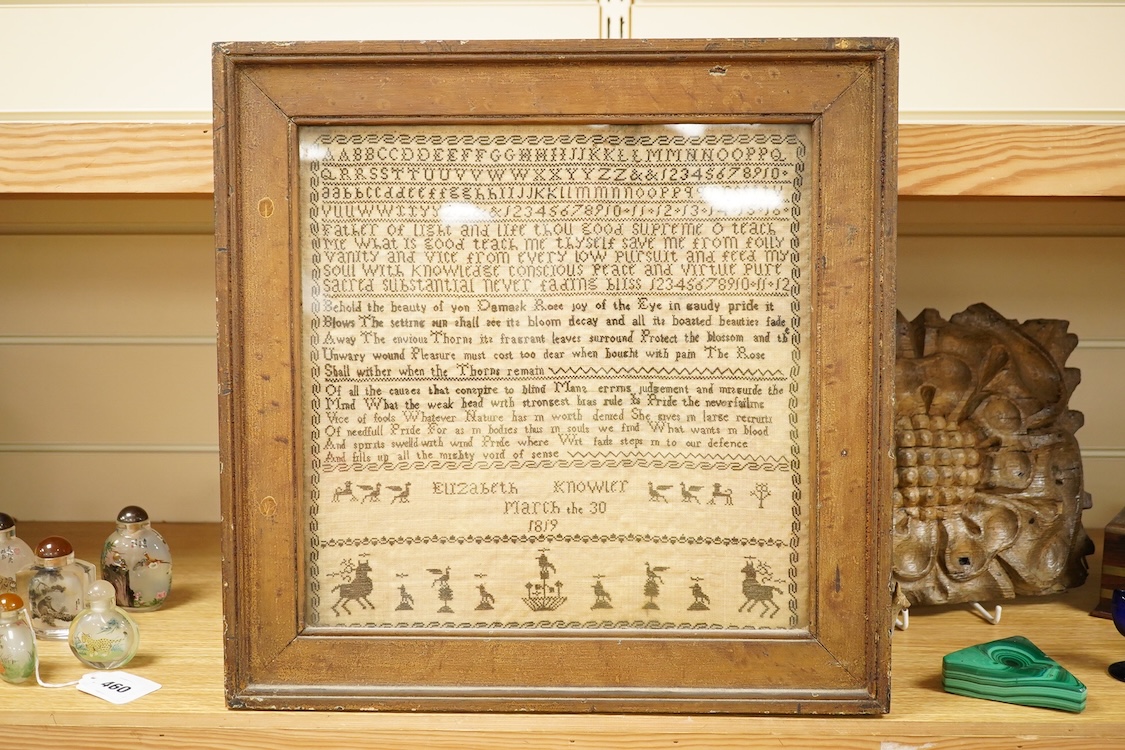 AABBCCDDEEFFGGHHIIJJKKLLMMNNOOPPQ
QRRSSTTUUVVWWXXYYZZ&&12345678910
aabbccddeeffgghhiijjkkllmmnnooppq
vuuwwxxyy 12345678910 11 12 13 14 15 16
Father of light and life thou good supreme O teach
me what is good teach me thyself save me from folly
vanity and vice from every low pursuit and feed my
soul with knowledge conscious peace and virtue pure
sacred substantial never fading bliss 12345678910 11 12
Behold the beauty of yon Damask Rose joy of the Eye in gaudy pride it
Blows The setting sun shall see its bloom decay and all its boasted beauties fade
Away The envious Thorns its fragrant leaves surround Protect the blossom and th
Unwary wound Pleasure must cost too dear when bought with pain The Rose
Shall wither when the Thorns remain
Of all the causes that conspire to blind Mans errring judgement and misguide the
Mind What the weak head with strongest bias rule Is Pride the neverfailing
Vice of fools Whatever Nature has in worth denied She gives in large recruits
Of needfull Pride For as in bodies thus in souls we find What wants in blood
And spirits swelld with wind Pride where Wit fails steps in to our defence
And fills up all the mighty void of sense
Elizabeth Knowler
March the 30
1819
460